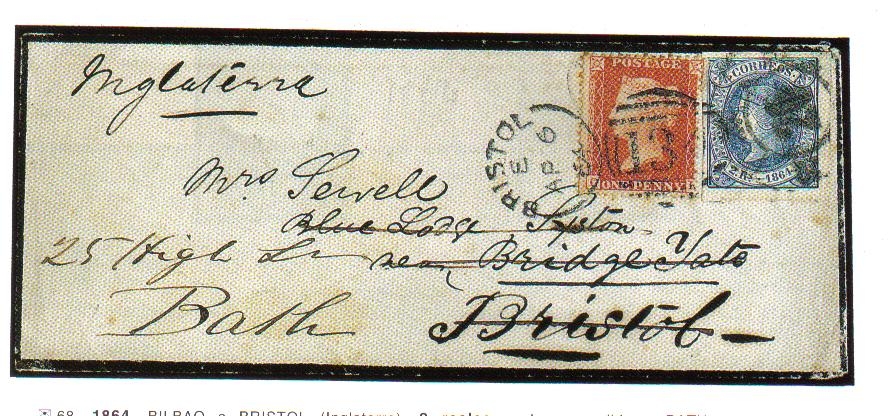 Inglaterra
POSTAGE
ONE PENNY
CORREOS
2 Rs 1864
BRISTOL
E
AP 6
64
13
Mrs Sewell
Blue Lodge
25 High
near Bridge Yate
Bath
Bristol
68 1864 BILBAO a BRISTOL (Inglaterra) 2 reales